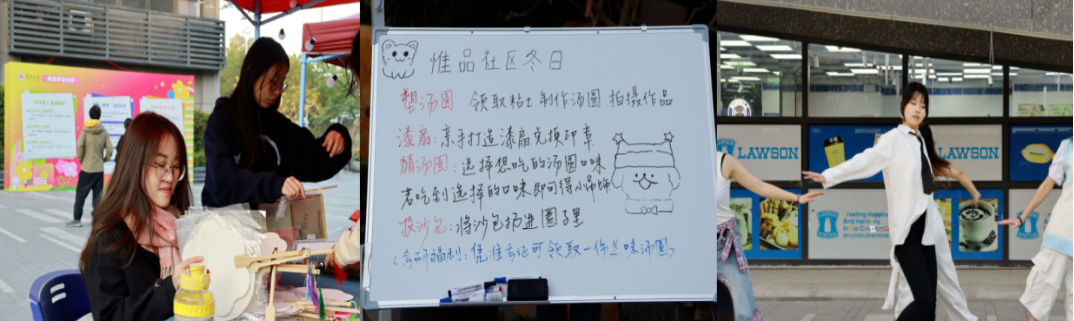 惟品社区冬日
塑汤圆:领取粘土制作汤圆 拍摄作品
漆扇:亲手打造漆扇兑换印章
猜汤圆:选择想吃的汤圆口味
若吃到选择的口味即可得小吊饰
投沙包:将沙包扔进圈子里
(考研福利:凭准考证可领取一份美味汤圆)
LAWSON
LAWSON
Creating Happiness
And Harmony
In Our Communities